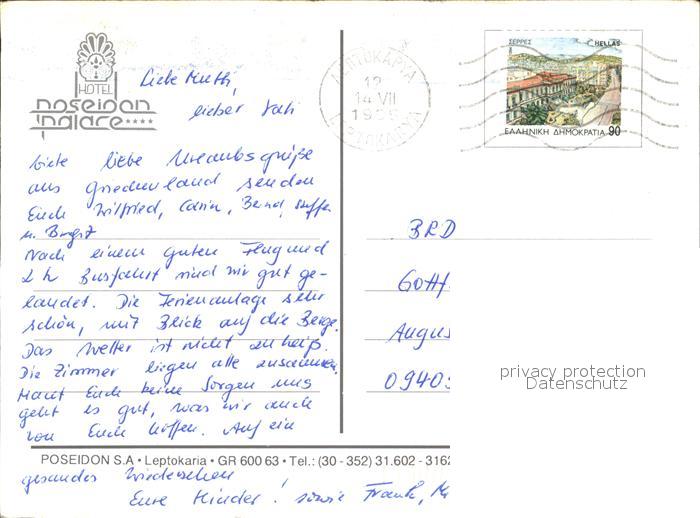 HOTEL
poseidon
palace****
Liebe Mutti,
lieber Vati
viele liebe Urlaubsgrüße
aus Griechenland senden
Euch Wilfried, Carin, Bernd, Steffen
u. Birgit
Nach einem guten Flug und
2 h Busfahrt sind wir gut ge-
landet. Die Ferienanlage sehr
schön, mit Blick auf die Berge.
Das Wetter ist nicht zu heiß.
Die Zimmer liegen alle zusammen.
Macht Euch keine Sorgen uns
geht es gut, was wir auch
von Euch hoffen. Auf ein
POSEIDON S.A • Leptokaria • GR 600 63 • Tel.: (30 - 352) 31.602 - 3162
gesundes Wiedersehen
Eure Kinder! sowie Frank,
ΛΕΠΤΟΚΑΡΥΑ
12
14 VII
LEPTOKARYA
ΣΕΡΡΕΣ
HELLAS
ΕΛΛΗΝΙΚΗ ΔΗΜΟΚΡΑΤΙΑ 90
BRD
Augus
09405
privacy protection
Datenschutz